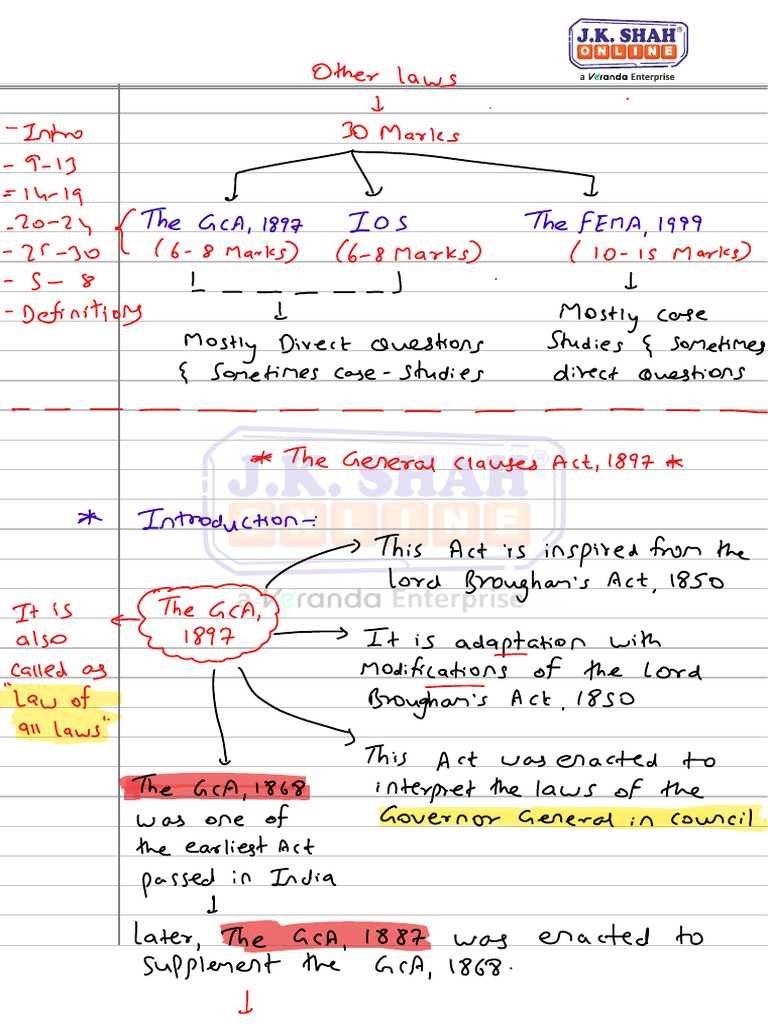 J.K. SHAH®
ONLINE
a Veranda Enterprise
Other laws
↓
30 Marks
- Intro
- 9-13
= 14-19
- 20-24
- 25-30
- 5 - 8
- Definitions
The GCA, 1897 IOS The FEMA, 1999
(6-8 Marks) (6-8 Marks) (10-15 Marks)
Mostly Direct Questions
& Sometimes case-studies
Mostly case
Studies & Sometimes
direct questions
* The General clauses Act, 1897 *
J.K. SHAH®
ONLINE
a Veranda Enterprise
* Introduction-:
The GCA,
1897
This Act is inspired from the
Lord Brougham's Act, 1850
It is
also
called as
"Law of
all laws"
It is adaptation with
Modifications of the Lord
Brougham's Act, 1850
This Act was enacted to
interpret the laws of the
Governor General in council
The GCA, 1868
was one of
the earliest Act
passed in India
↓
Later, The GCA, 1887 was enacted to
supplement the GCA, 1868.
↓